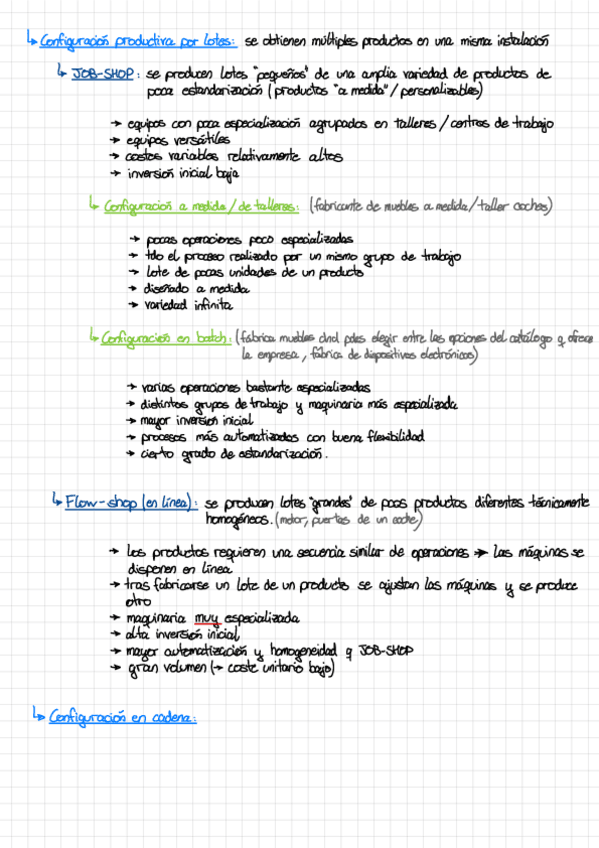 ↳ Configuración productiva por lotes: se obtienen múltiples productos en una misma instalación
↳ JOB-SHOP: se producen lotes "pequeños" de una amplia variedad de productos de
poca estandarización (productos "a medida"/personalizables)
→ equipos con poca especialización agrupados en talleres/centros de trabajo
→ equipos versátiles
→ costes variables relativamente altos
→ inversión inicial baja
↳ Configuración a medida/de talleres: (fabricante de muebles a medida/taller coches)
→ pocas operaciones poco especializadas
→ tdo el proceso realizado por un mismo grupo de trabajo
→ Lote de pocas unidades de un producto
→ diseñado a medida
→ variedad infinita
↳ Configuración en batch: (fábrica muebles dnd pdes elegir entre las opciones del catálogo q ofrece
la empresa, fábrica de dispositivos electrónicos)
→ varias operaciones bastante especializadas
→ distintos grupos de trabajo y maquinaria más especializada
→ mayor inversión inicial
→ procesos más automatizados con buena flexibilidad
→ cierto grado de estandarización.
↳ Flow-shop (en línea): se producen lotes "grandes" de pocos productos diferentes técnicamente
homogéneos. (motor, puertas de un coche)
→ los productos requieren una secuencia similar de operaciones → las máquinas se
disponen en línea
→ tras fabricarse un lote de un producto se ajustan las máquinas y se produce
otro
→ maquinaria muy especializada
→ alta inversión inicial
→ mayor automatización y homogeneidad q JOB-SHOP
→ gran volumen (→ coste unitario bajo)
↳ Configuración en cadena: